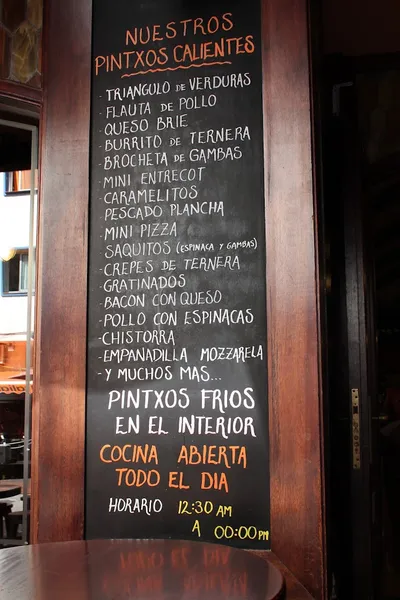 NUESTROS
PINTXOS CALIENTES
- TRIANGULO DE VERDURAS
- FLAUTA DE POLLO
- QUESO BRIE
- BURRITO DE TERNERA
- BROCHETA DE GAMBAS
- MINI ENTRECOT
- CARAMELITOS
- PESCADO PLANCHA
- MINI PIZZA
- SAQUITOS (ESPINACA Y GAMBAS)
- CREPES DE TERNERA
- GRATINADOS
- BACON CON QUESO
- POLLO CON ESPINACAS
- CHISTORRA
- EMPANADILLA MOZZARELA
- Y MUCHOS MAS...
PINTXOS FRIOS
EN EL INTERIOR
COCINA ABIERTA
TODO EL DIA
HORARIO 12:30 AM
A 00:00 PM